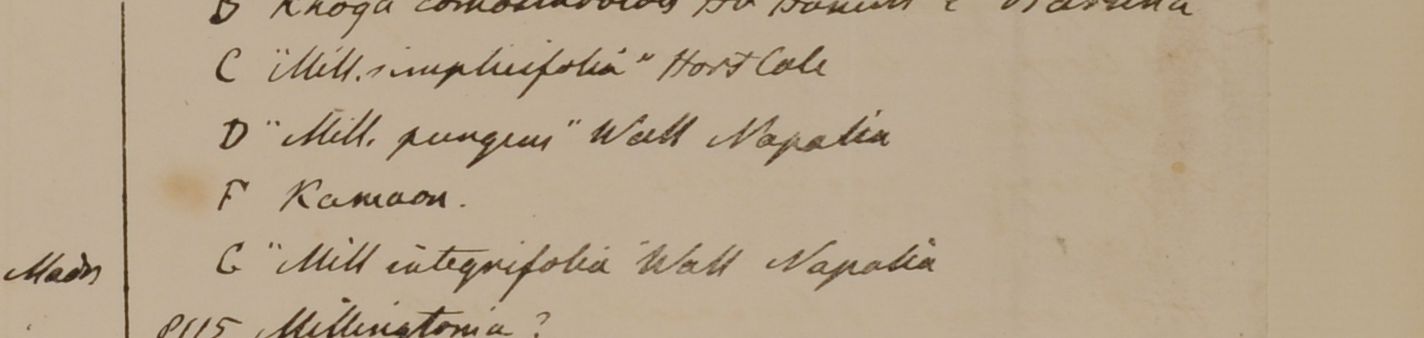 C "Mill. simplicifolia" Hort Calc
D "Mill. pungens" Wall Napalia
F Kamaon.
G "Mill integrifolia" Wall Napalia
8115 Millingtonia?